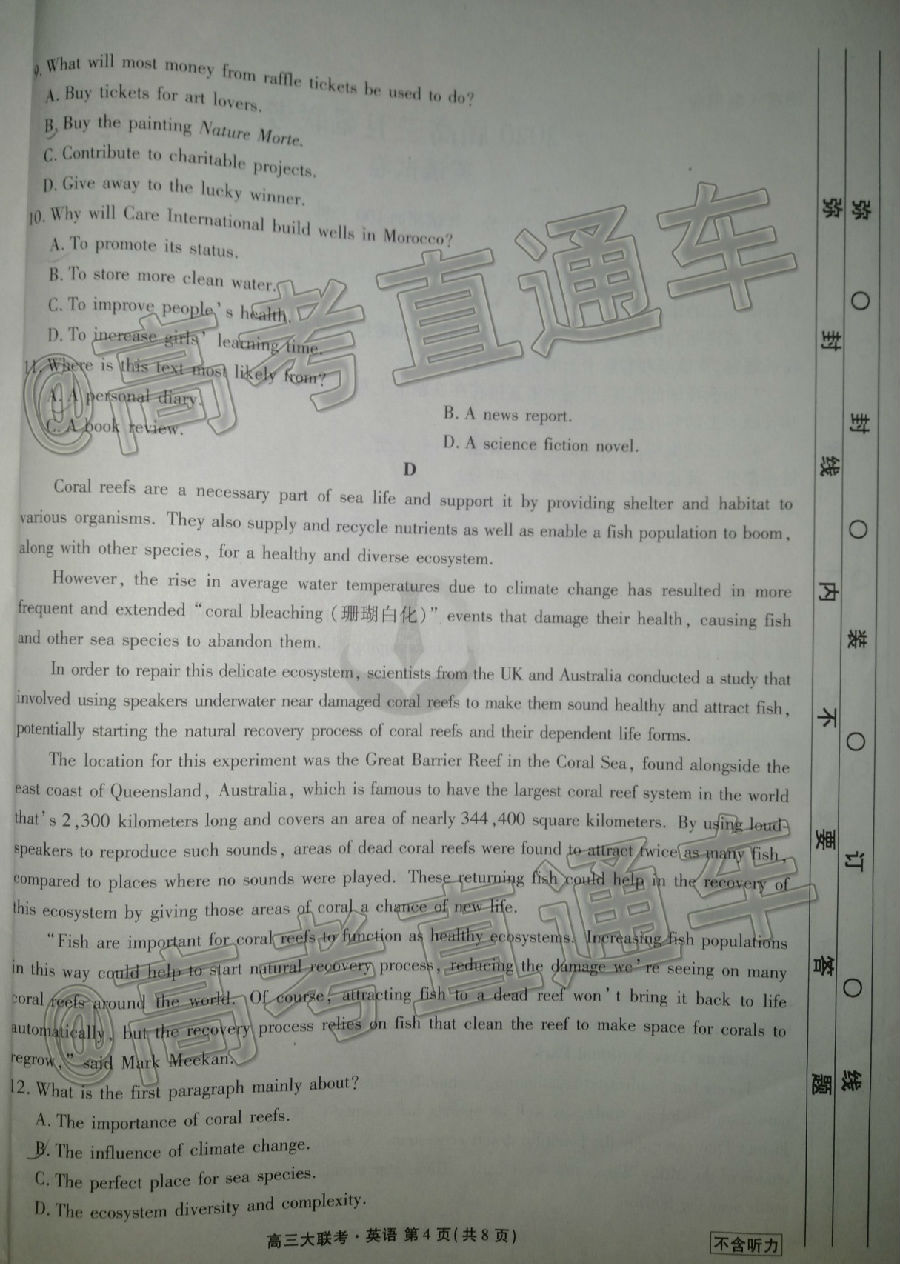 9. What will most money from raffle tickets be used to do?
A. Buy tickets for art lovers.
B. Buy the painting Nature Morte.
C. Contribute to charitable projects.
D. Give away to the lucky winner.
10. Why will Care International build wells in Morocco?
A. To promote its status.
B. To store more clean water.
C. To improve people's health.
D. To increase girls' learning time.
11. Where is this text most likely from?
A. A personal diary.
B. A news report.
C. A book review.
D. A science fiction novel.
D
Coral reefs are a necessary part of sea life and support it by providing shelter and habitat to
various organisms. They also supply and recycle nutrients as well as enable a fish population to boom,
along with other species, for a healthy and diverse ecosystem.
However, the rise in average water temperatures due to climate change has resulted in more
frequent and extended "coral bleaching (珊瑚白化)" events that damage their health, causing fish
and other sea species to abandon them.
In order to repair this delicate ecosystem, scientists from the UK and Australia conducted a study that
involved using speakers underwater near damaged coral reefs to make them sound healthy and attract fish,
potentially starting the natural recovery process of coral reefs and their dependent life forms.
The location for this experiment was the Great Barrier Reef in the Coral Sea, found alongside the
east coast of Queensland, Australia, which is famous to have the largest coral reef system in the world
that's 2,300 kilometers long and covers an area of nearly 344,400 square kilometers. By using loud-
speakers to reproduce such sounds, areas of dead coral reefs were found to attract twice as many fish,
compared to places where no sounds were played. These returning fish could help in the recovery of
this ecosystem by giving those areas of coral a chance of new life.
"Fish are important for coral reefs to function as healthy ecosystems. Increasing fish populations
in this way could help to start natural recovery process, reducing the damage we're seeing on many
coral reefs around the world. Of course, attracting fish to a dead reef won't bring it back to life
automatically, but the recovery process relies on fish that clean the reef to make space for corals to
regrow," said Mark Meekan.
12. What is the first paragraph mainly about?
A. The importance of coral reefs.
B. The influence of climate change.
C. The perfect place for sea species.
D. The ecosystem diversity and complexity.
高三大联考·英语 第4页(共8页)
不含听力
弥 封 线 内 不 要 答 题
弥 ○ 封 ○ 装 ○ 订 ○ 线
@高考直通车
@高考直通车